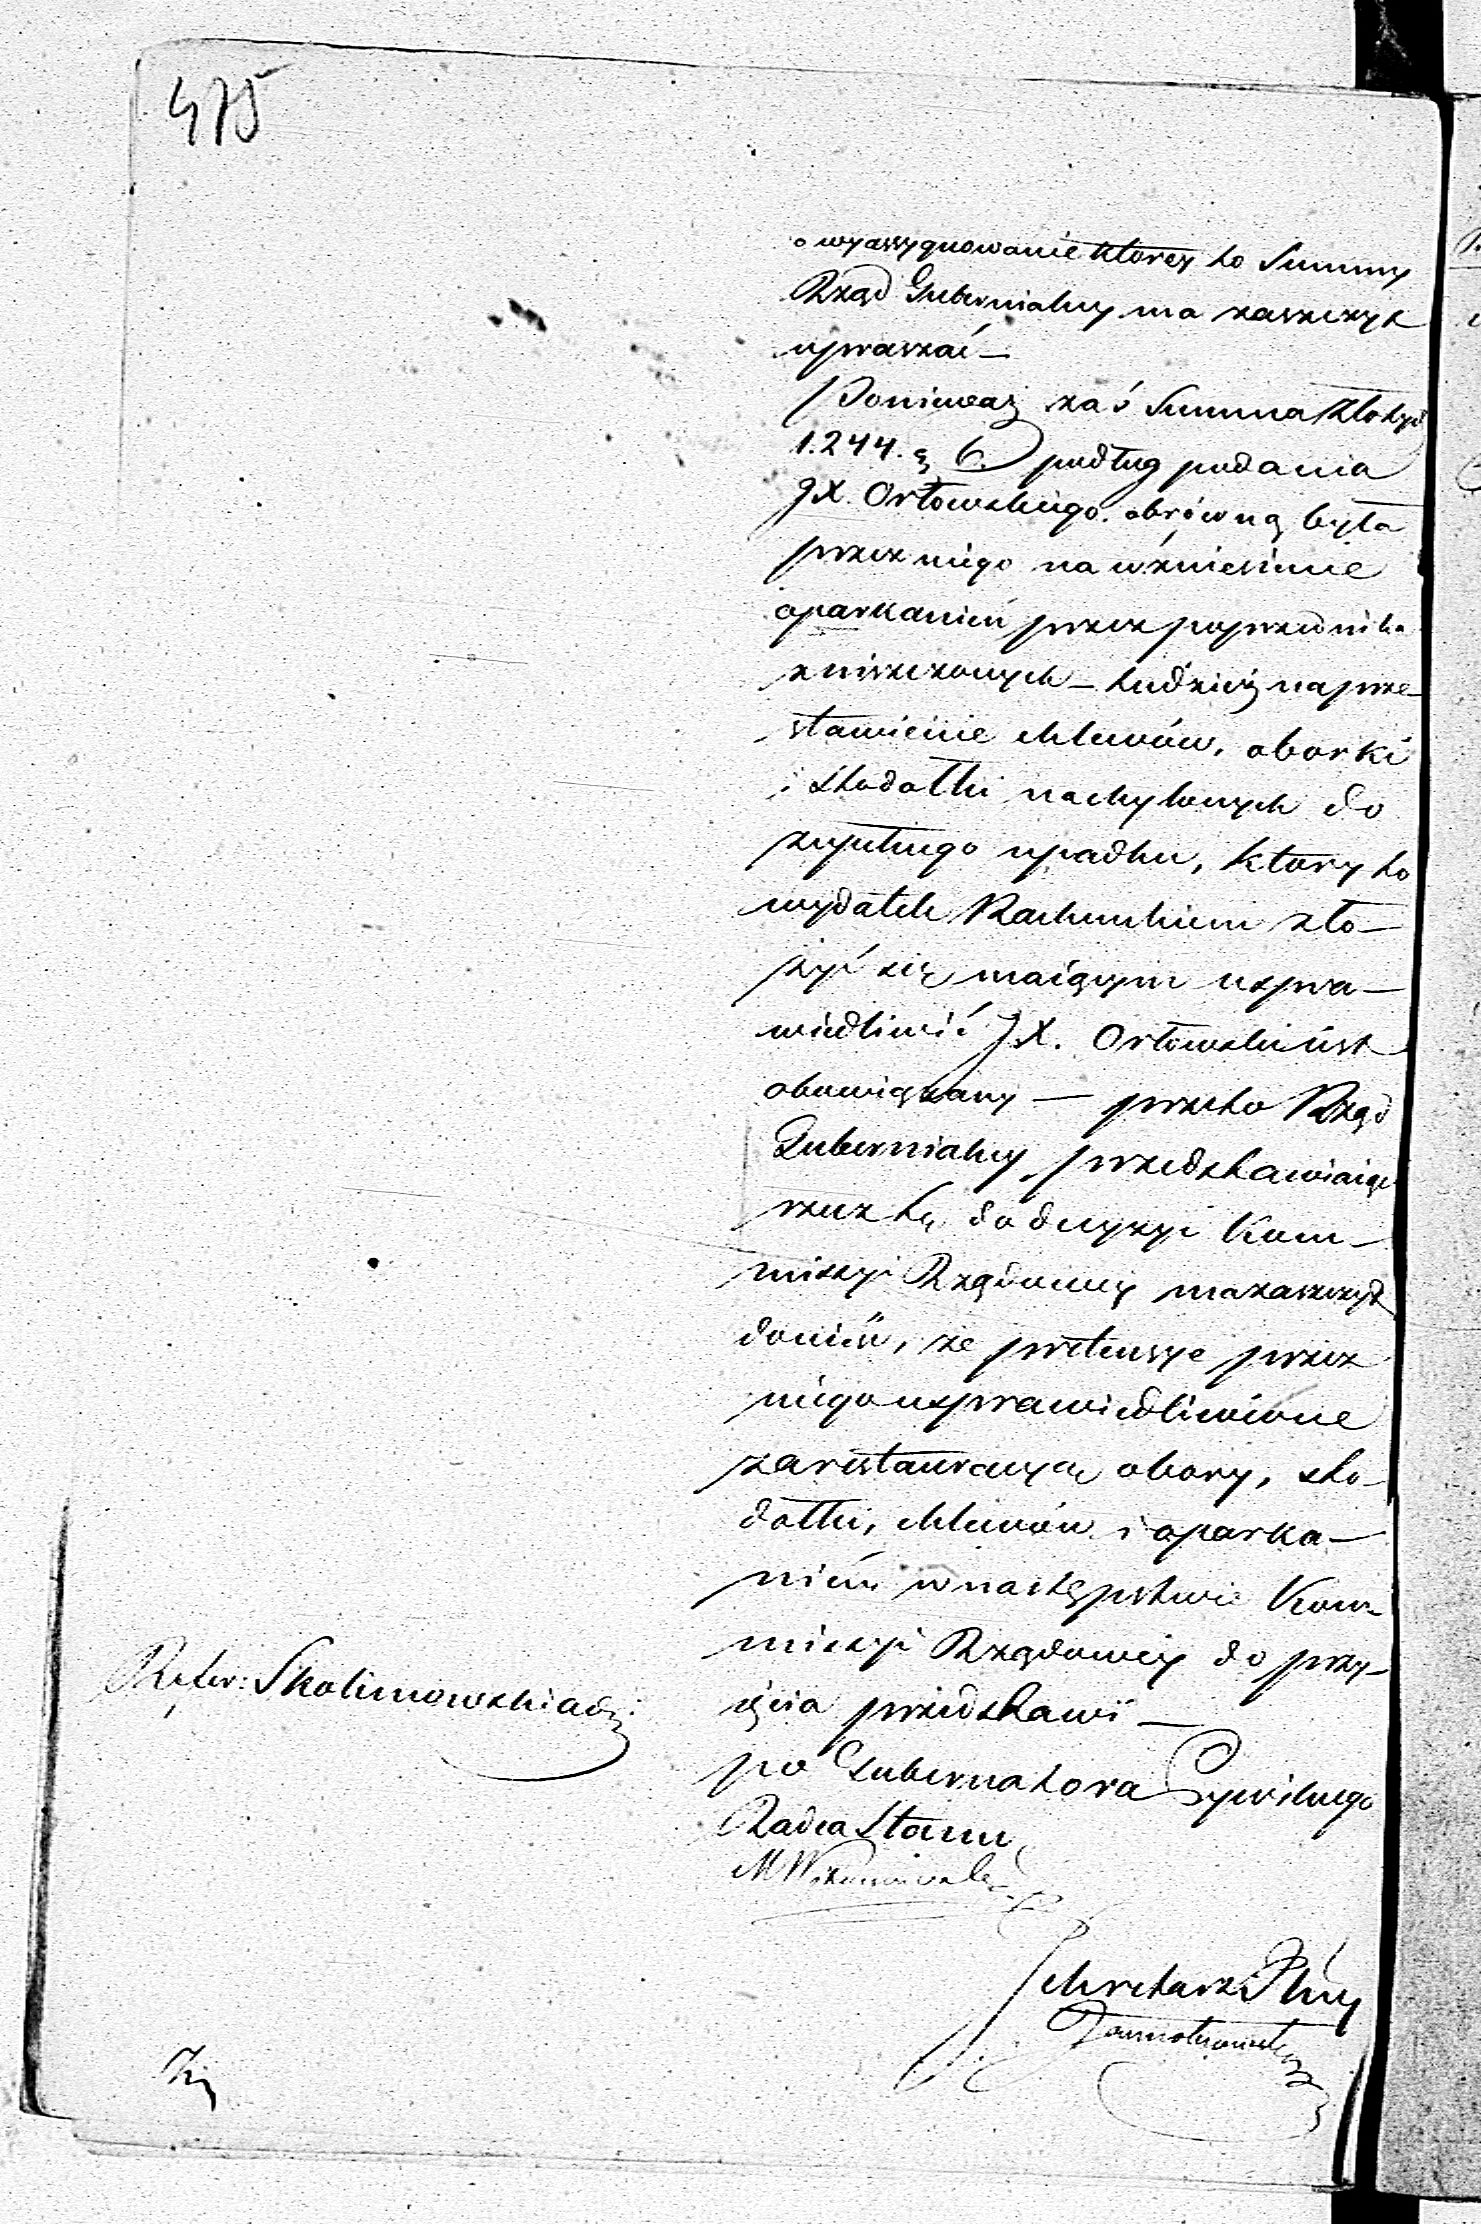 475
o wyassygnowanie ktorey to Summy
Rząd Gubernialny ma zaszczyt
upraszać —
Ponieważ zaś Summa Złotych
1.244. g 6. podług podania
JX. Orłowskiego obrówną była
przez niego na wźniesienie
oparkanień przez poprzednika
zniszczonych — tudzież na prze-
stawienie chlewów, oborki
i Stodołki nachylonych do
zupełnego upadku, ktory to
wydatek Rachunkiem zło-
żyć się maiącym uspra-
wiedliwić JX. Orłowski iest
obowiązany — przeto Rząd
Gubernialny przedstawiaiąc
rzecz tę do decyzyi Kom-
missyi Rządowey ma zaszczyt
donieść, że pretensye przez
niego usprawiedliwione
za restauracyą obory, sto-
dołki, chlewów i oparka-
nień w następstwie Kom-
missyi Rządowey do przy-
ięcia przedstawi —
po Gubernatora Cywilnego
Radca Stanu
Refer: Skolimowski
Sekretarz Jlny